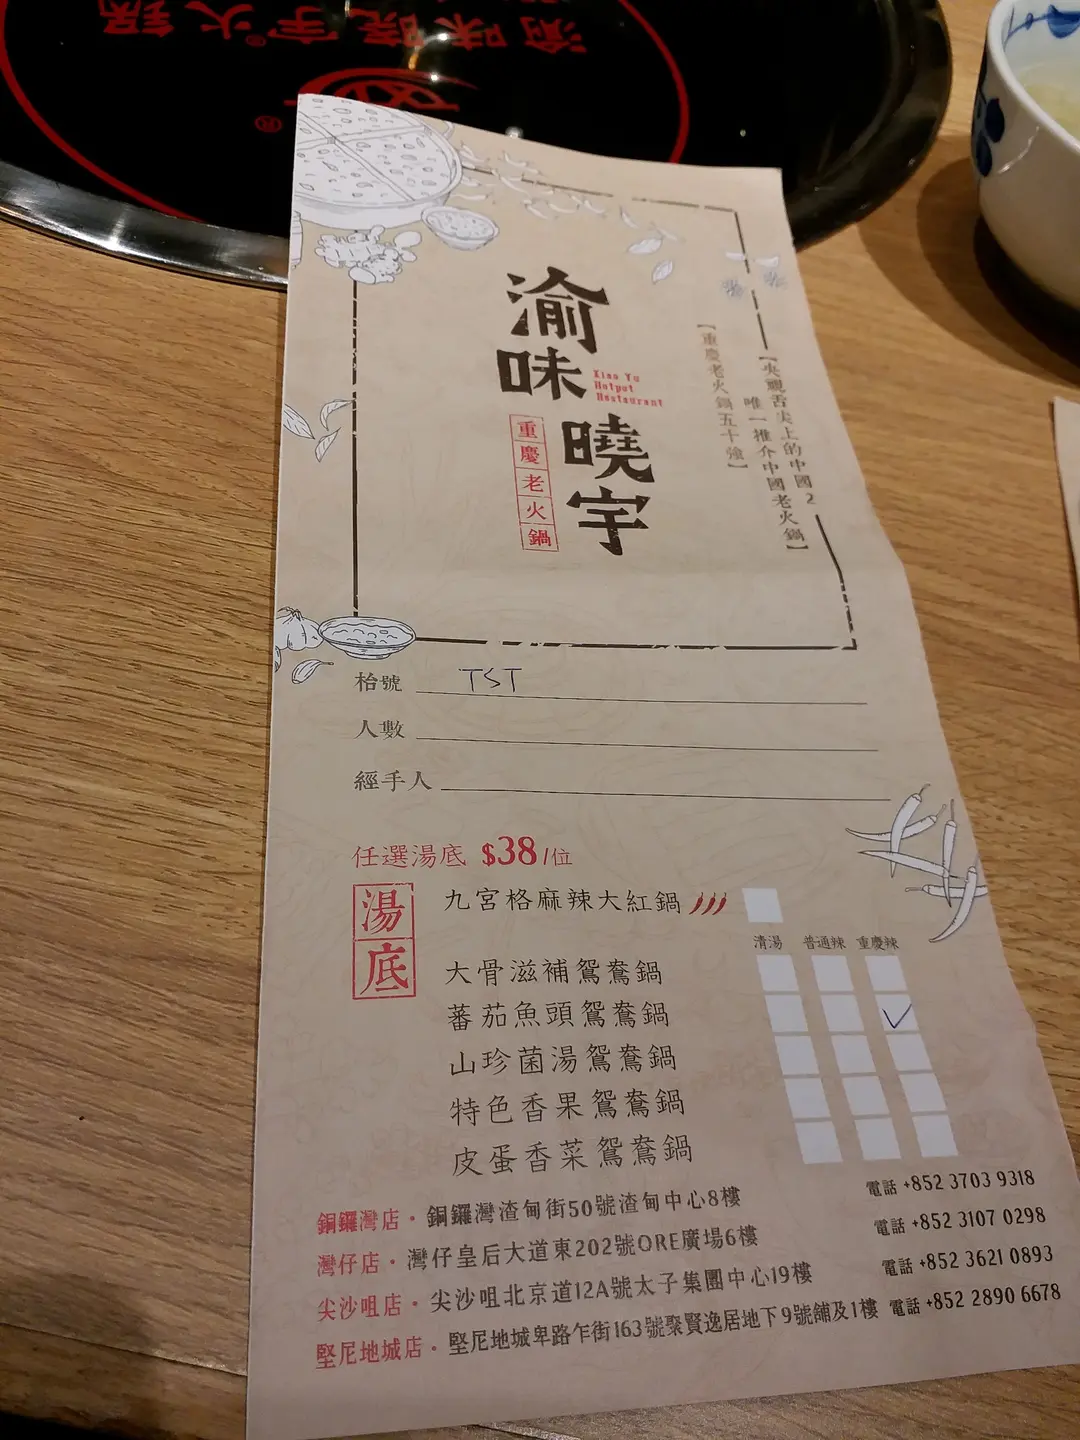 渝味曉宇火鍋®
渝味曉宇
Xiao Yu
Hotpot
Restaurant
重慶老火鍋
【央視舌尖上的中國2
唯一推介中國老火鍋】
【重慶老火鍋五十強】
枱號 TST
人數
經手人
任選湯底 $38/位
湯底
九宮格麻辣大紅鍋
清湯 普通辣 重慶辣
大骨滋補鴛鴦鍋
蕃茄魚頭鴛鴦鍋
山珍菌湯鴛鴦鍋
特色香果鴛鴦鍋
皮蛋香菜鴛鴦鍋
銅鑼灣店・銅鑼灣渣甸街50號渣甸中心8樓 電話 +852 3703 9318
灣仔店・灣仔皇后大道東202號ORE廣場6樓 電話 +852 3107 0298
尖沙咀店・尖沙咀北京道12A號太子集團中心19樓 電話 +852 3621 0893
堅尼地城店・堅尼地城卑路乍街163號聚賢逸居地下9號舖及1樓 電話 +852 2890 6678